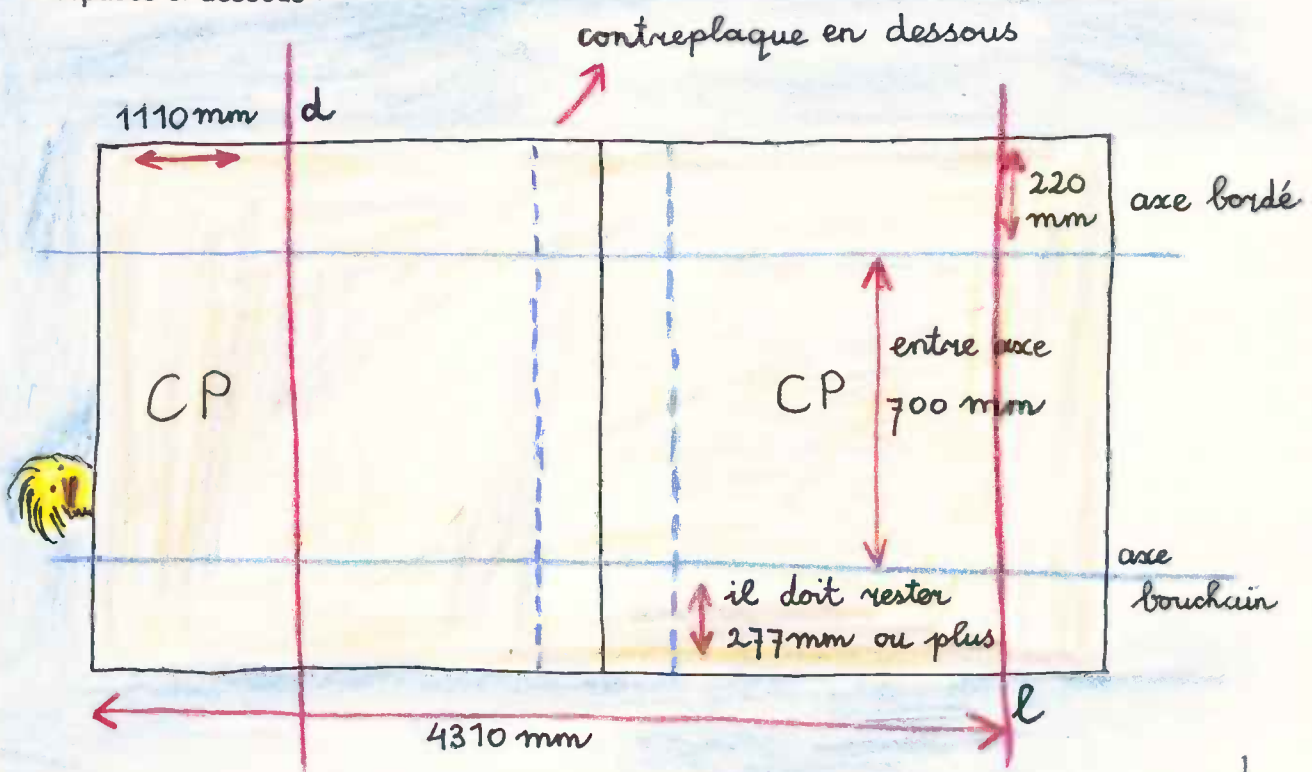 contreplaque en dessous
1110 mm
d
220
mm
axe bordé
entre axe
700 mm
CP
CP
axe
bouchain
il doit rester
277mm ou plus
l
4310 mm
1